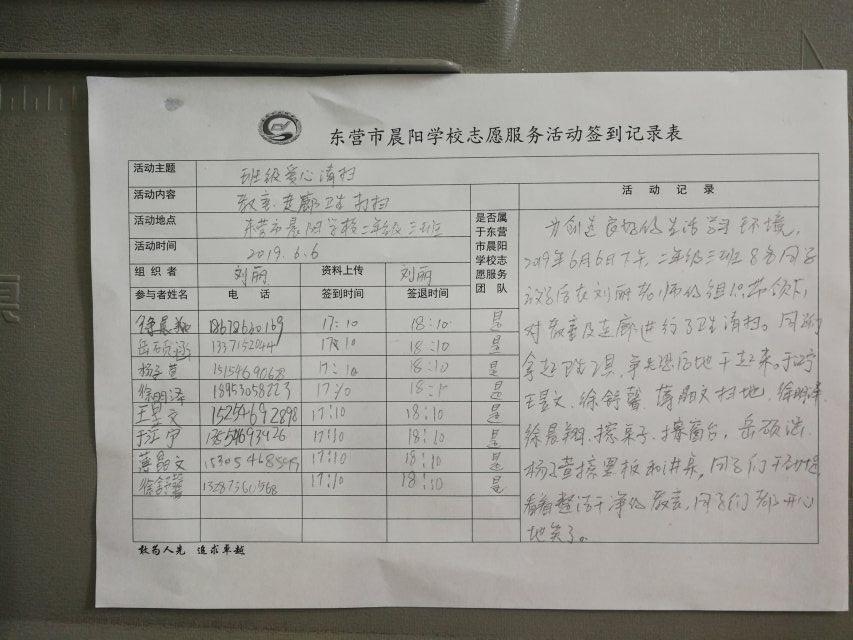 东营市晨阳学校志愿服务活动签到记录表
活动主题 班级爱心清扫
活动内容 教室、走廊卫生打扫
活动地点 东营市晨阳学校二年级三班
活动时间 2019.6.6
组织者 刘丽 资料上传 刘丽
参与者姓名 电话 签到时间 签退时间
是否属
于东营
市晨阳
学校志
愿服务
团队
徐晨翔 17:10 18:10 是
岳硕涵 17:10 18:10 是
杨子萱 15154690628 17:10 18:10 是
徐明泽 18953058223 17:10 18:1 是
王昱文 15254692898 17:10 18:10 是
于江宁 17:10 18:10 是
蒋晶文 17:10 18:10 是
徐舒馨 13287360568 17:10 18:10 是
活动记录
为创造良好的生活学习环境,
2019年6月6日下午,二年级三班8名同学
放学后在刘丽老师的组织带领下,
对教室及走廊进行了卫生清扫。同学们
拿起卫生工具,争先恐后地干起来。于江宁
王昱文、徐舒馨、蒋晶文扫地,徐明泽
徐晨翔、擦桌子、擦窗台,岳硕涵、
杨子萱擦黑板和讲桌。同学们干劲
看着整洁干净的教室,同学们都开心
地笑了。
敢为人先 追求卓越